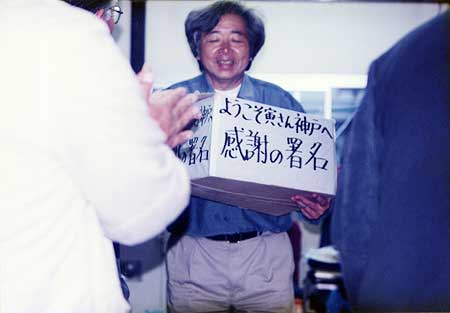 ようこそ寅さん神戸へ
感謝の署名
署名